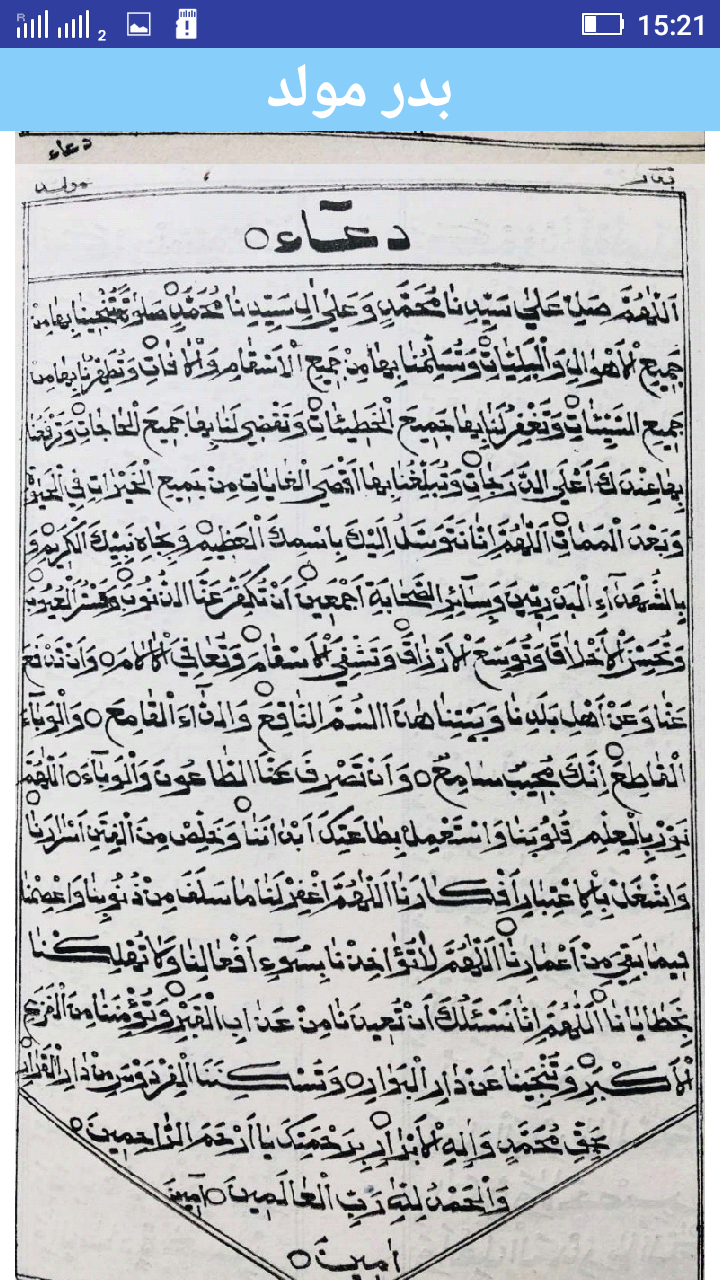 15:21
2
بدر مولد
دعاء
بدر
مولد
دعـــاء
اَللّٰهُمَّ صَلِّ عَلىٰ سَيِّدِنَا مُحَمَّدٍ وَعَلىٰ اٰلِ سَيِّدِنَا مُحَمَّدٍ صَلوٰةً تُنْجِينَا بِهَا مِنْ
جَمِيعِ الْاَهْوَالِ وَالْبَلِيَّاتْ وَتُسَلِّمُنَا بِهَا مِنْ جَمِيعِ الْاَسْقَامِ وَالْاٰفَاتْ وَتُطَهِّرُنَا بِهَا مِنْ
جَمِيعِ السَّيِّئَاتِ وَتَغْفِرُ لَنَا بِهَا جَمِيعَ الْخَطِيئَاتْ وَتَقْضِي لَنَا بِهَا جَمِيعَ الْحَاجَاتْ وَتَرْفَعُنَا
بِهَا عِنْدَكَ اَعْلَى الدَّرَجَاتْ وَتُبَلِّغُنَا بِهَا اَقْصَى الْغَايَاتِ مِنْ جَمِيعِ الْخَيْرَاتِ فِي الْحَيٰوةِ
وَبَعْدَ الْمَمَاتْ اَللّٰهُمَّ اِنَّا نَتَوَسَّلُ اِلَيْكَ بِاسْمِكَ الْعَظِيمْ وَبِجَاهِ نَبِيِّكَ الْكَرِيمْ وَ
بِالشُّهَدَآءِ الْبَدْرِيِّينَ وَسَآئِرِ الصَّحَابَةِ اَجْمَعِينْ اَنْ تُكَفِّرَ عَنَّا الذُّنُوبْ وَتَسْتُرَ الْعُيُوبْ
وَتُحَسِّنَ الْاَخْلَاقَ وَتُوَسِّعَ الْاَرْزَاقْ وَتَشْفِيَ الْاَسْقَامْ وَتُعَافِيَ الْاٰلَامَ وَاَنْ تَدْفَعَ
عَنَّا وَعَنْ اَهْلِ بَلَدِنَا وَبَيْتِنَا هٰذَا السُّمَّ النَّاقِعْ وَالدَّاءَ الْقَامِعْ وَالْوَبَآءَ
الْقَاطِعْ اِنَّكَ مُجِيبٌ سَامِعٌ وَاَنْ تَصْرِفَ عَنَّا الطَّاعُونَ وَالْوَبَآءَ اَللّٰهُمَّ
نَوِّرْ بِالْعِلْمِ قُلُوبَنَا وَاسْتَعْمِلْ بِطَاعَتِكَ اَبْدَانَنَا وَخَلِّصْ مِنَ الْفِتَنِ اَسْرَارَنَا
وَاشْغَلْ بِالْاِعْتِبَارِ اَفْكَارَنَا اَللّٰهُمَّ اغْفِرْ لَنَا مَا سَلَفَ مِنْ ذُنُوبِنَا وَاعْصِمْنَا
فِيمَا بَقِيَ مِنْ اَعْمَارِنَا اَللّٰهُمَّ لَا تُؤَاخِذْنَا بِسُوٓءِ اَفْعَالِنَا وَلَا تُهْلِكْنَا
بِخَطَايَانَا اَللّٰهُمَّ اِنَّا نَسْئَلُكَ اَنْ تُعِيذَنَا مِنْ عَذَابِ الْقَبْرِ وَتُؤْمِنَنَا مِنَ الْفَزَعِ
الْاَكْبَرِ وَتُنْجِيَنَا عَنْ دَارِ الْبَوَارِ وَتُسْكِنَنَا الْفِرْدَوْسَ مِنْ دَارِ الْقَرَارْ
بِحَقِّ مُحَمَّدٍ وَاٰلِهِ الْاَبْرَارِ بِرَحْمَتِكَ يَا اَرْحَمَ الرَّاحِمِينَ
وَالْحَمْدُ لِلّٰهِ رَبِّ الْعَالَمِينَ اٰمِينَ
اٰمِينَ